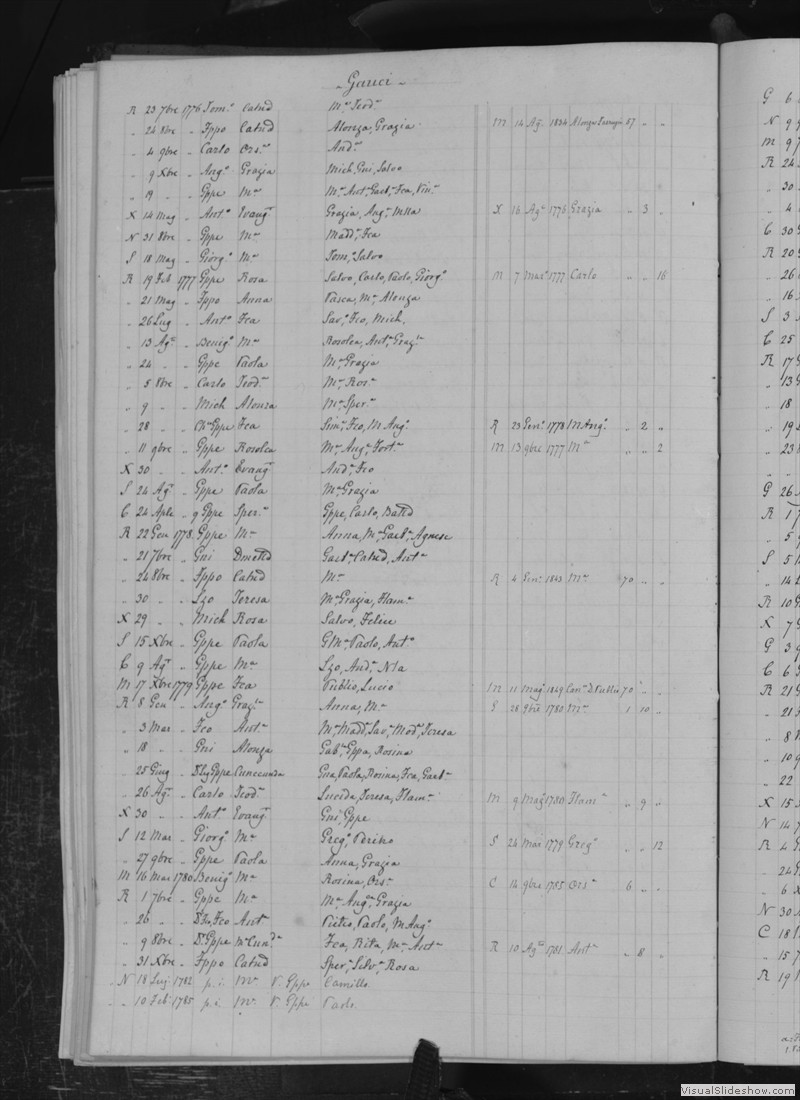 Gauci
R 23 7bre 1776 Tom.º Catad M.ª Teod.ª
„ 24 8bre „ Fppo Catad Alonza, Grazia M 14 Ag.º 1834 Alonza 57 „ „
„ 4 9bre „ Carlo Ors.ª And.ª
„ 9 Xbre „ Ang.º Grazia Mich, Gni, Salvo
„ 19 „ „ Gppe M.ª M.ª Ant.ª Gaet.ª Fca, Vin.ª
X 14 Mag „ Ant.º Evang.ª Grazia, Ang.ª X 16 Ag.º 1776 Grazia „ 3 „
N 31 8bre „ Gppe M.ª Madd.ª Fca
S 18 Mag „ Giorg.º M.ª Tom.º Salvo
R 19 Feb 1777 Gppe Rosa Salvo, Carlo, Paolo, Giorg.º M 7 Mar.º 1777 Carlo „ „ 16
„ 21 Mag „ Fppo Anna Pasca, M.ª Alonza
„ 26 Lug „ Ant.º Fca Sav.º Fco, Mich.
„ 13 Ag.º „ Benig.º M.ª Rosolea, Ant.ª Graz.ª
„ 24 „ „ Gppe Paola M.ª Grazia
„ 5 8bre „ Carlo Teod.ª M.ª Ros.ª
„ 9 „ „ Mich Alonza M.ª Sper.ª
„ 28 „ „ Gppe Fca Sim.ª Fco, M Ang.º R 23 Gen.º 1778 M Ang.º „ 2 „
„ 11 9bre „ Gppe Rosolea M.ª Ang.ª Fort.ª M 13 9bre 1777 M.ª „ „ 2
X 30 „ „ Ant.º Evang.ª And.ª Fco
S 24 Ag.º „ Gppe Paola M.ª Grazia
C 24 Aple „ Gppe Sper.ª Gppe, Carlo, Batta
R 22 Gen 1778 Gppe M.ª Anna, M.ª Gaet.ª Agnese
„ 21 7bre „ Gni Dmetta Gaet.ª Catad, Ant.ª
„ 24 8bre „ Fppo Catad M.ª R 4 Gen.º 1843 M.ª 70 „ „
„ 30 „ „ Lzo Teresa M.ª Grazia, Flam.ª
X 29 „ „ Mich Rosa Salvo, Felice
S 15 Xbre „ Gppe Paola GM.ª Paolo, Ant.º
C 9 Ag.º „ Gppe M.ª Lzo, And.ª Nla
M 17 Xbre 1779 Gppe Fca Publio, Lucio M 11 Mag.º 1849 Can.º D. Publio 70 „ „
R 8 Gen „ Ang.º Graz.ª Anna, M.ª G 28 9bre 1780 M.ª 1 10 „
„ 3 Mar „ Fco Ant.ª M.ª Madd.ª Sav.ª Mod.ª Teresa
„ 18 „ „ Gni Alonza Gab.ª Gppa, Rosina
„ 25 Giug „ Gppe Cunecunda Gna, Paola, Rosina, Fca, Gaet.ª
„ 26 Ag.º „ Carlo Teod.ª Lucida, Teresa, Flam.ª M 9 Mag 1780 Flam.ª „ 9 „
X 30 „ „ Ant.º Evang.ª Gni, Gppe
S 12 Mar „ Giorg.º M.ª Greg.º S 24 Mar 1779 Greg.º „ „ 12
„ 27 9bre „ Gppe Paola Anna, Grazia
M 16 Mar 1780 Benig.º M.ª Rosina, Ors.ª C 14 9bre 1785 Ors.ª 6 „ „
R 1 7bre „ Gppe M.ª M.ª Ang.ª Grazia
„ 26 „ „ Fco Ant.ª Pietro, Paolo, M Ang.º
„ 9 8bre „ D.r Gppe Cun.ª Fca, Rita, M.ª Ant.ª R 10 Ag.º 1781 Ant.ª „ 8 „
„ 31 Xbre „ Fppo Catad Sper.ª Silv.ª Rosa
N 18 Lug 1782 p. i. M.ª V. Gppe Camillo
„ 10 Feb. 1785 p. i. M.ª V. Gppe Paolo
VisualSlideshow.com